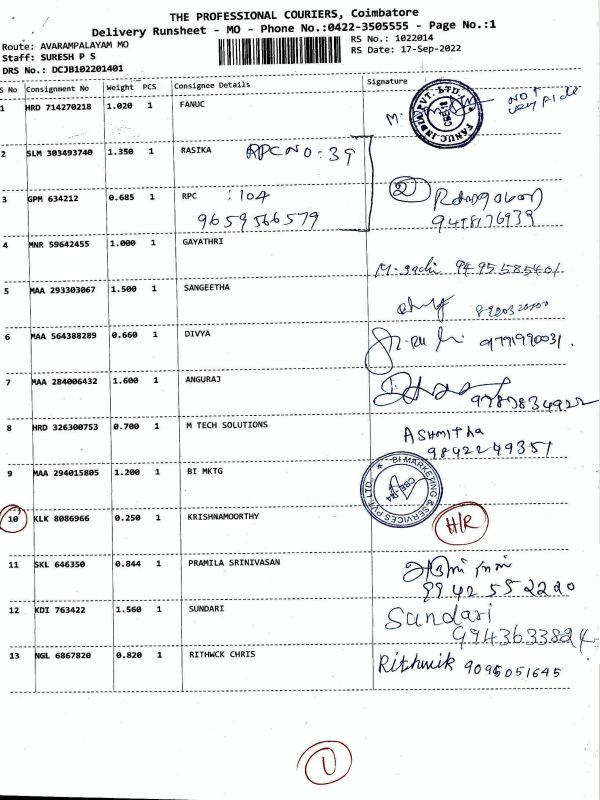 THE PROFESSIONAL COURIERS, Coimbatore
Delivery Runsheet - MO - Phone No.:0422-3505555 - Page No.:1
Route: AVARAMPALAYAM MO
RS No.: 1022014
Staff: SURESH P S
RS Date: 17-Sep-2022
DRS No.: DCJB102201401
S No Consignment No Weight PCS Consignee Details Signature
1 HRD 714270218 1.020 1 FANUC
FANUC INDIA PVT. LTD.
NOT
2 SLM 303493740 1.350 1 RASIKA RPC NO : 39
3 GPM 634212 0.685 1 RPC : 104 2
9659566579
4 MNR 59642455 1.000 1 GAYATHRI
5 MAA 293303067 1.500 1 SANGEETHA
6 MAA 564388289 0.660 1 DIVYA
7 MAA 284006432 1.600 1 ANGURAJ
8 HRD 326300753 0.700 1 M TECH SOLUTIONS ASHMITHA
9842249351
9 MAA 294015805 1.200 1 BI MKTG
BI MARKETING & SERVICES PVT LTD
10 KLK 8086966 0.250 1 KRISHNAMOORTHY H/R
11 SKL 646350 0.844 1 PRAMILA SRINIVASAN
9942552220
12 KDI 763422 1.560 1 SUNDARI Sundari
9943633824
13 NGL 6867820 0.820 1 RITHWCK CHRIS Rithwik 9095051645
1